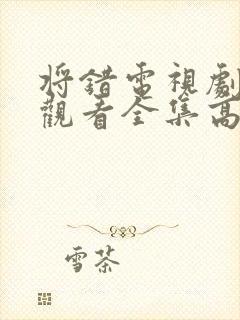 將錯電視劇
觀看全集高
雪茶